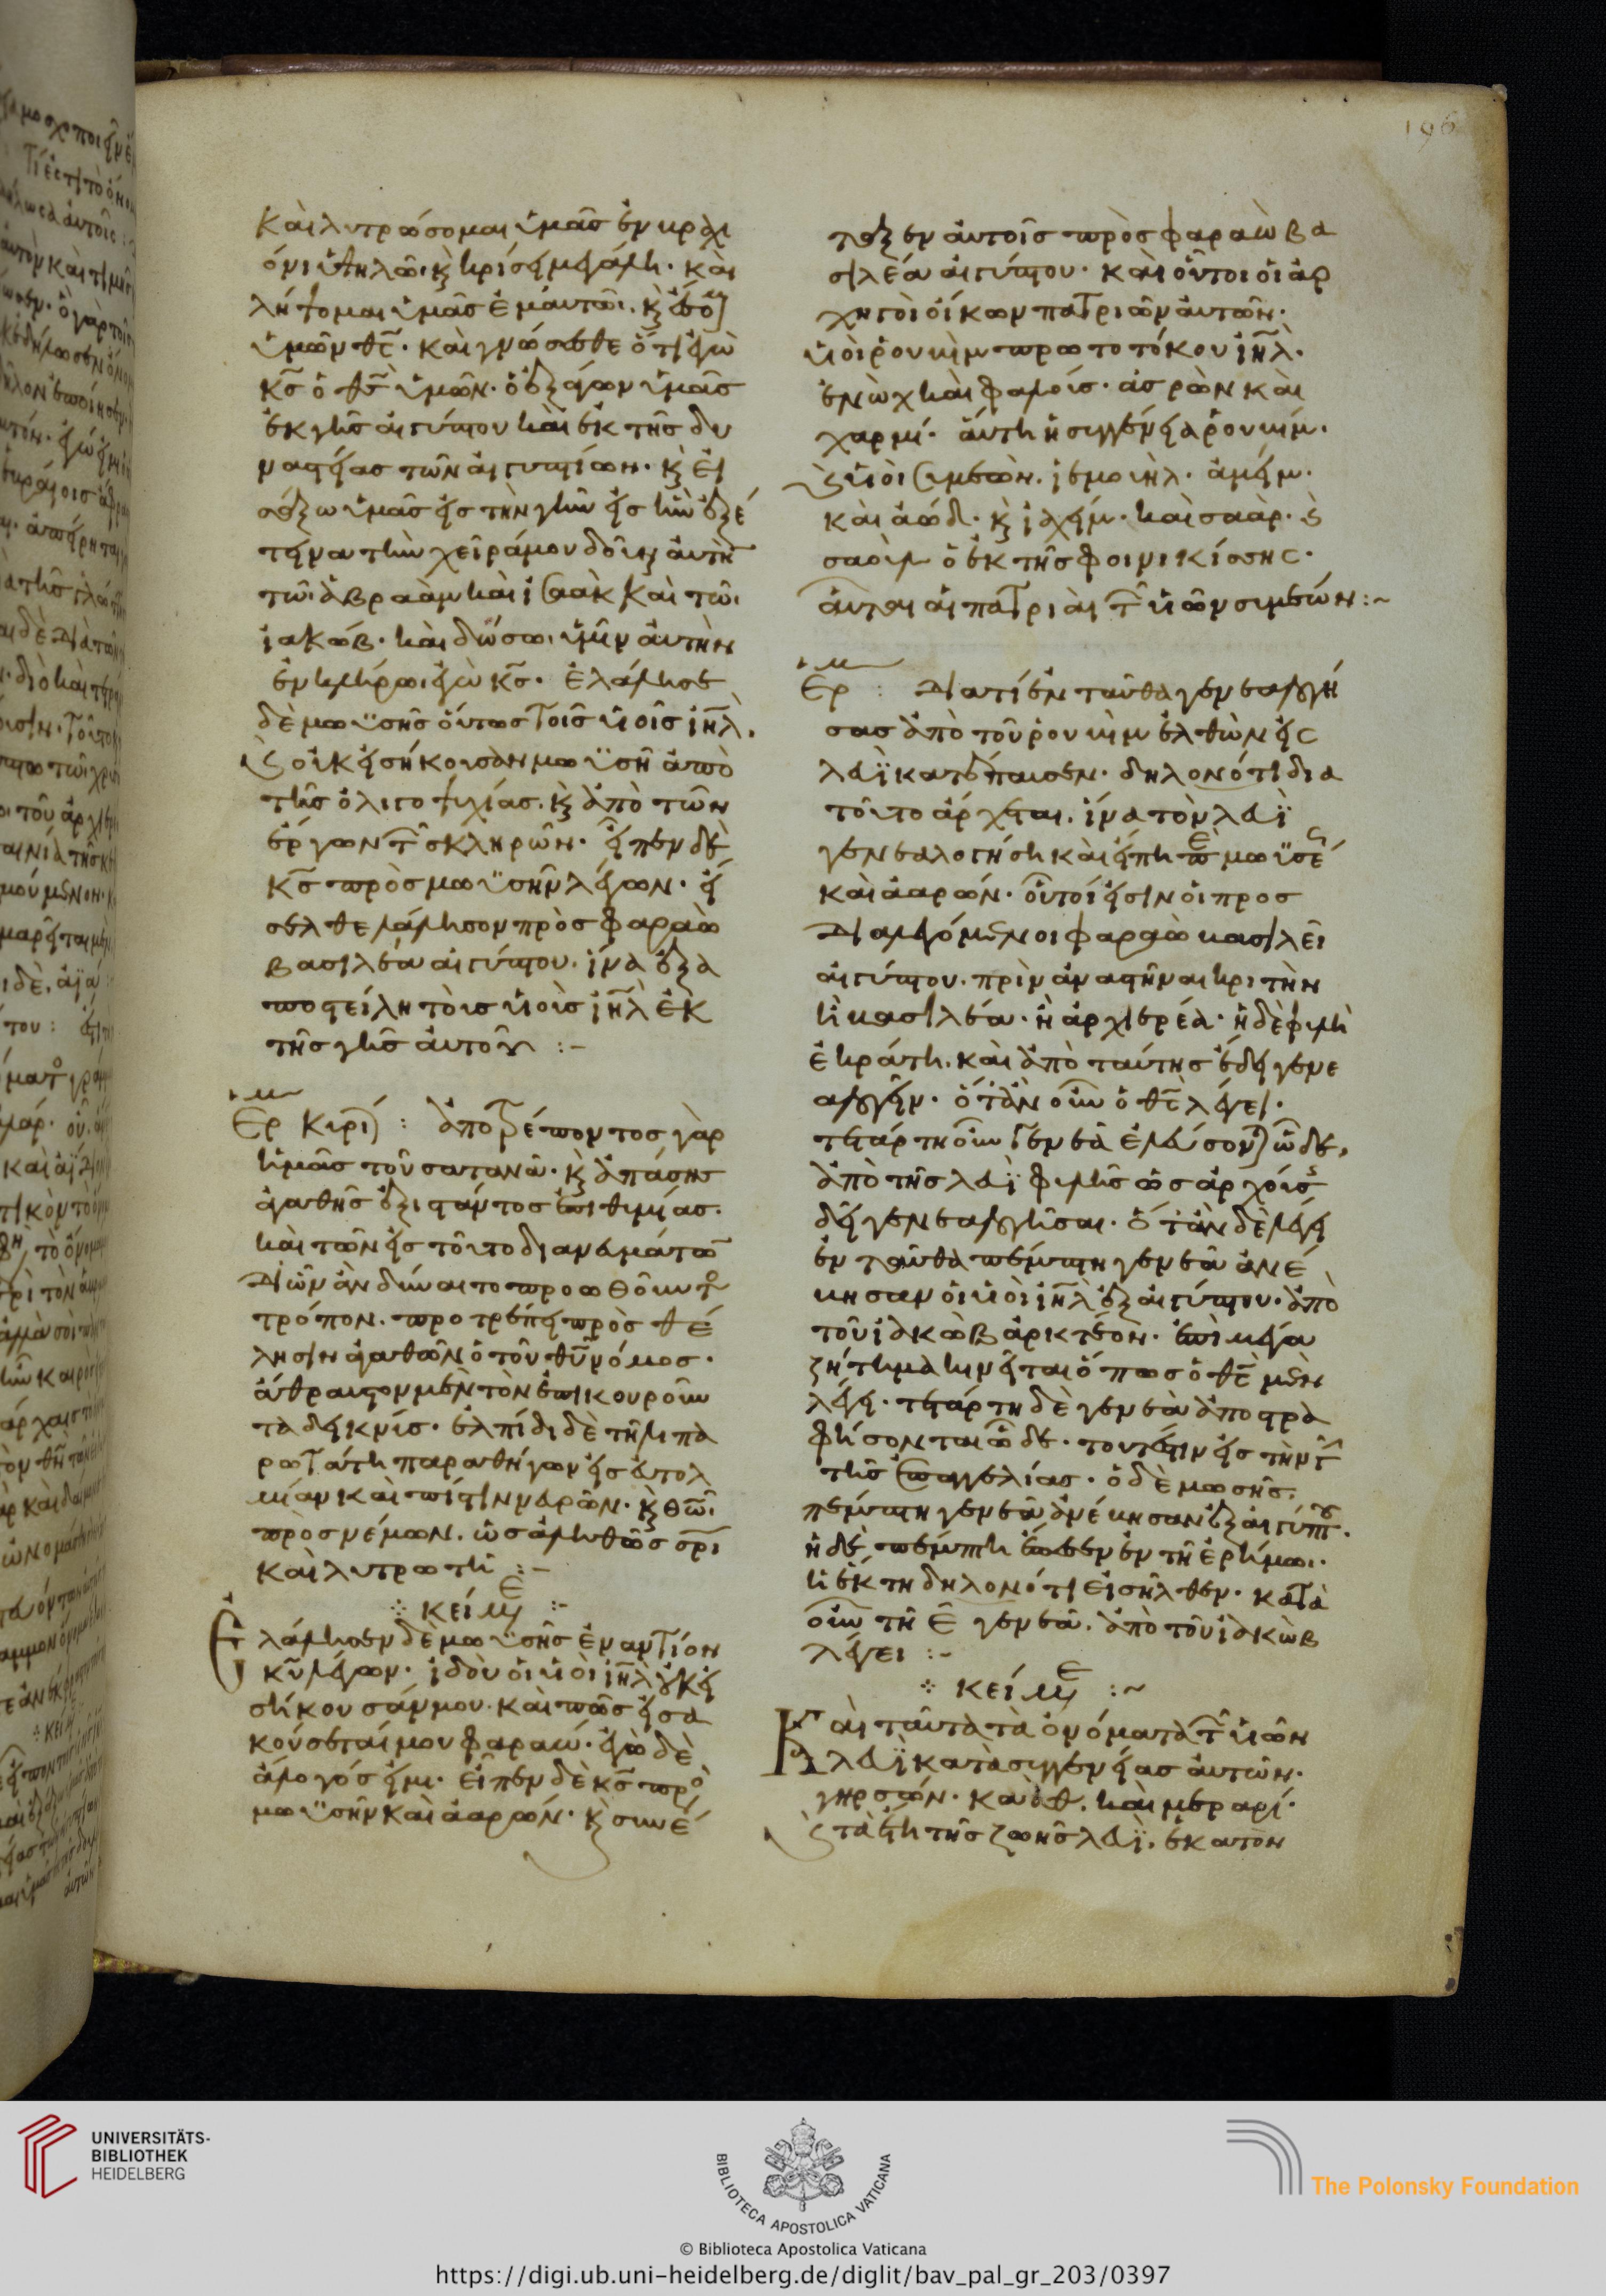 196
Καὶ λυτρώσομαι ὑμᾶς ἐν βραχι
όνι ὑψηλῶι κ κρίσει μεγάλη· και
λήψομαι ὑμᾶς ἐμαυτῶι. κ ἔσομαι
ὑμῶν θς· καὶ γνώσεσθε ὅτι ἐγὼ
κς ὁ θς ὑμῶν· ὁ ἐξάγων ὑμᾶς
ἐκ γῆς αἰγύπτου καὶ ἐκ τῆς δυ
ναστείας τῶν αἰγυπτίων· κ εἰ
σάξω ὑμᾶς εἰς τὴν γῆν εἰς ἣν ἐξέ
τεινα τὴν χεῖρά μου δοῦναι αὐτὴν
τῶι ἀβραὰμ καὶ ἰσαὰκ καὶ τῶι
ἰακώβ· καὶ δώσω ὑμῖν αὐτὴν
ἐν κλήρωι ἐγὼ κς· ἐλάλησε
δὲ μωϋσῆς οὕτως τοῖς υἱοῖς ιηλ.
κ οὐκ εἰσήκουσαν μωϋσῆ ἀπὸ
τῆς ὀλιγοψυχίας. κ ἀπὸ τῶν
ἔργων τῶν σκληρῶν· εἶπεν δὲ
κς πρὸς μωϋσῆν λέγων· εἴ
σελθε λάλησον πρὸς φαραὼ
βασιλέα αἰγύπτου. ἵνα ἐξα
ποστείλη τοὺς υἱοὺς ιηλ ἐκ
τῆς γῆς αὐτοῦ :-
Ερμ Κυρι : ἀποτρέποντος γὰρ
ἡμᾶς τοῦ σατανᾶ· κ ἁπάσης
ἀγαθῆς ἐξιστάντος ἐπιθυμίας.
καὶ τῶν εἰς τοῦτο διανευμάτων
δι ὧν ἂν δύναιτο προωθοῦντο
τρόπον. προτρέπει πρὸς θέ
λησιν ἀγαθῶν ὁ τοῦ θυ νόμος.
ἄθραυστον μὲν τὸν ἐπικουροῦν
τα δεικνύς· ἐλπίδι δὲ τῆ λιπα
ρωτάτη παραθήγων εἰς εὐτολ
μίαν καὶ πίστιν νευρῶν. κ θῶι
προσνέμων. ὡς ἀληθῶς σρι
καὶ λυτρωτῆ :-
κείμε :-
Ἐλάλησεν δὲ μωϋσῆς ἐναντίον
κυ λέγων. ἰδοὺ οἱ υἱοὶ ιηλ οὐκ εἰ
σήκουσάν μου. καὶ πῶς εἰσα
κούσεταί μου φαραώ. ἐγὼ δὲ
ἄλογός εἰμι. εἶπεν δὲ κς πρὸς
μωϋσῆν καὶ ἀαρών· κ συνέ
ταξεν αὐτοῖς πρὸς φαραὼ βα
σιλέα αἰγύπτου· καὶ οὗτοι οἱ ἀρ
χηγοὶ οἴκων πατριῶν αὐτῶν·
υἱοὶ ῥουβὶμ πρωτοτόκου ιηλ·
ἐνὼχ καὶ φαλούς· ἀσρὼν καὶ
χαρμί· αὕτη ἡ συγγένεια ῥουβίμ·
κ υἱοὶ συμεών. ἰεμουήλ. ἀμείμ.
καὶ ἀώδ· κ ἰαχείμ· καὶ σαάρ. κ
σαοὺλ ὁ ἐκ τῆς φοινικίσσης.
αὗται αἱ πατριαὶ τῶν υἱῶν συμεών :~
Ερμ : Διατί ἐνταῦθα γενεαλογή
σας ἀπὸ τοῦ ῥουβὶμ ἐλθὼν εἰς
λευῒ κατέπαυσεν· δηλονότι δια
τοῦτο ἄρχεται. ἵνα τὸν λευῒ
γενεαλογήση καὶ εἴπη περὶ μωϋσέως
καὶ ἀαρών· οὗτοί εἰσιν οἱ προσ
διαλεγόμενοι φαραὼ βασιλεῖ
αἰγύπτου. πρὶν ἀναστῆναι κριτὴν
ἢ βασιλέα· ἢ ἀρχιερέα· ἥδε φυλὴ
ἐκράτη. καὶ ἀπὸ ταύτης ἔδει γενε
αλογεῖν· ὅταν οὖν ὁ θς λέγει.
τετάρτη οὖν γενεὰ ἐλεύσονται ὧδε,
ἀπὸ τῆς λευῒ φυλῆς ὡς ἀρχούσης
δεῖ γενεαλογῆσαι. ὅταν δὲ λέγη
ἐνταῦθα πέμπτη γενεᾶ ἀνέ
βησαν οἱ υἱοὶ ιηλ ἐξ αἰγύπτου. ἀπὸ
τοῦ ἰακὼβ ἀρκτέον. ἐπεὶ μέγα
ζήτημα γίνεται ὅπως ὁ θς μὲν
λέγει. τετάρτη δὲ γενεὰ ἀποστρα
φήσονται ὧδε. τουτέστιν εἰς τὴν γῆν
τῆς ἐπαγγελίας. ὁ δὲ μωσῆς.
πέμπτη γενεᾶ ἀνέβησαν ἐξ αἰγύπτου.
ἡ δὲ πέμπτη ἔπεσεν ἐν τῆ ἐρήμωι.
ἡ ἕκτη δηλονότι εἰσῆλθεν. κατὰ
οὖν τῆ ε γενεᾶ. ἀπὸ τοῦ ἰακὼβ
λέγει :-
κείμε :~
Καὶ ταῦτα τὰ ὀνόματα τῶν υἱῶν
λευῒ κατὰ συγγενείας αὐτῶν.
γηρσών. καὰθ. καὶ μεραρί.
κ τὰ ἔτη τῆς ζωῆς λευΐ. ἑκατὸν
UNIVERSITÄTS-
BIBLIOTHEK
HEIDELBERG
BIBLIOTECA APOSTOLICA VATICANA
The Polonsky Foundation
© Biblioteca Apostolica Vaticana
https://digi.ub.uni-heidelberg.de/diglit/bav_pal_gr_203/0397